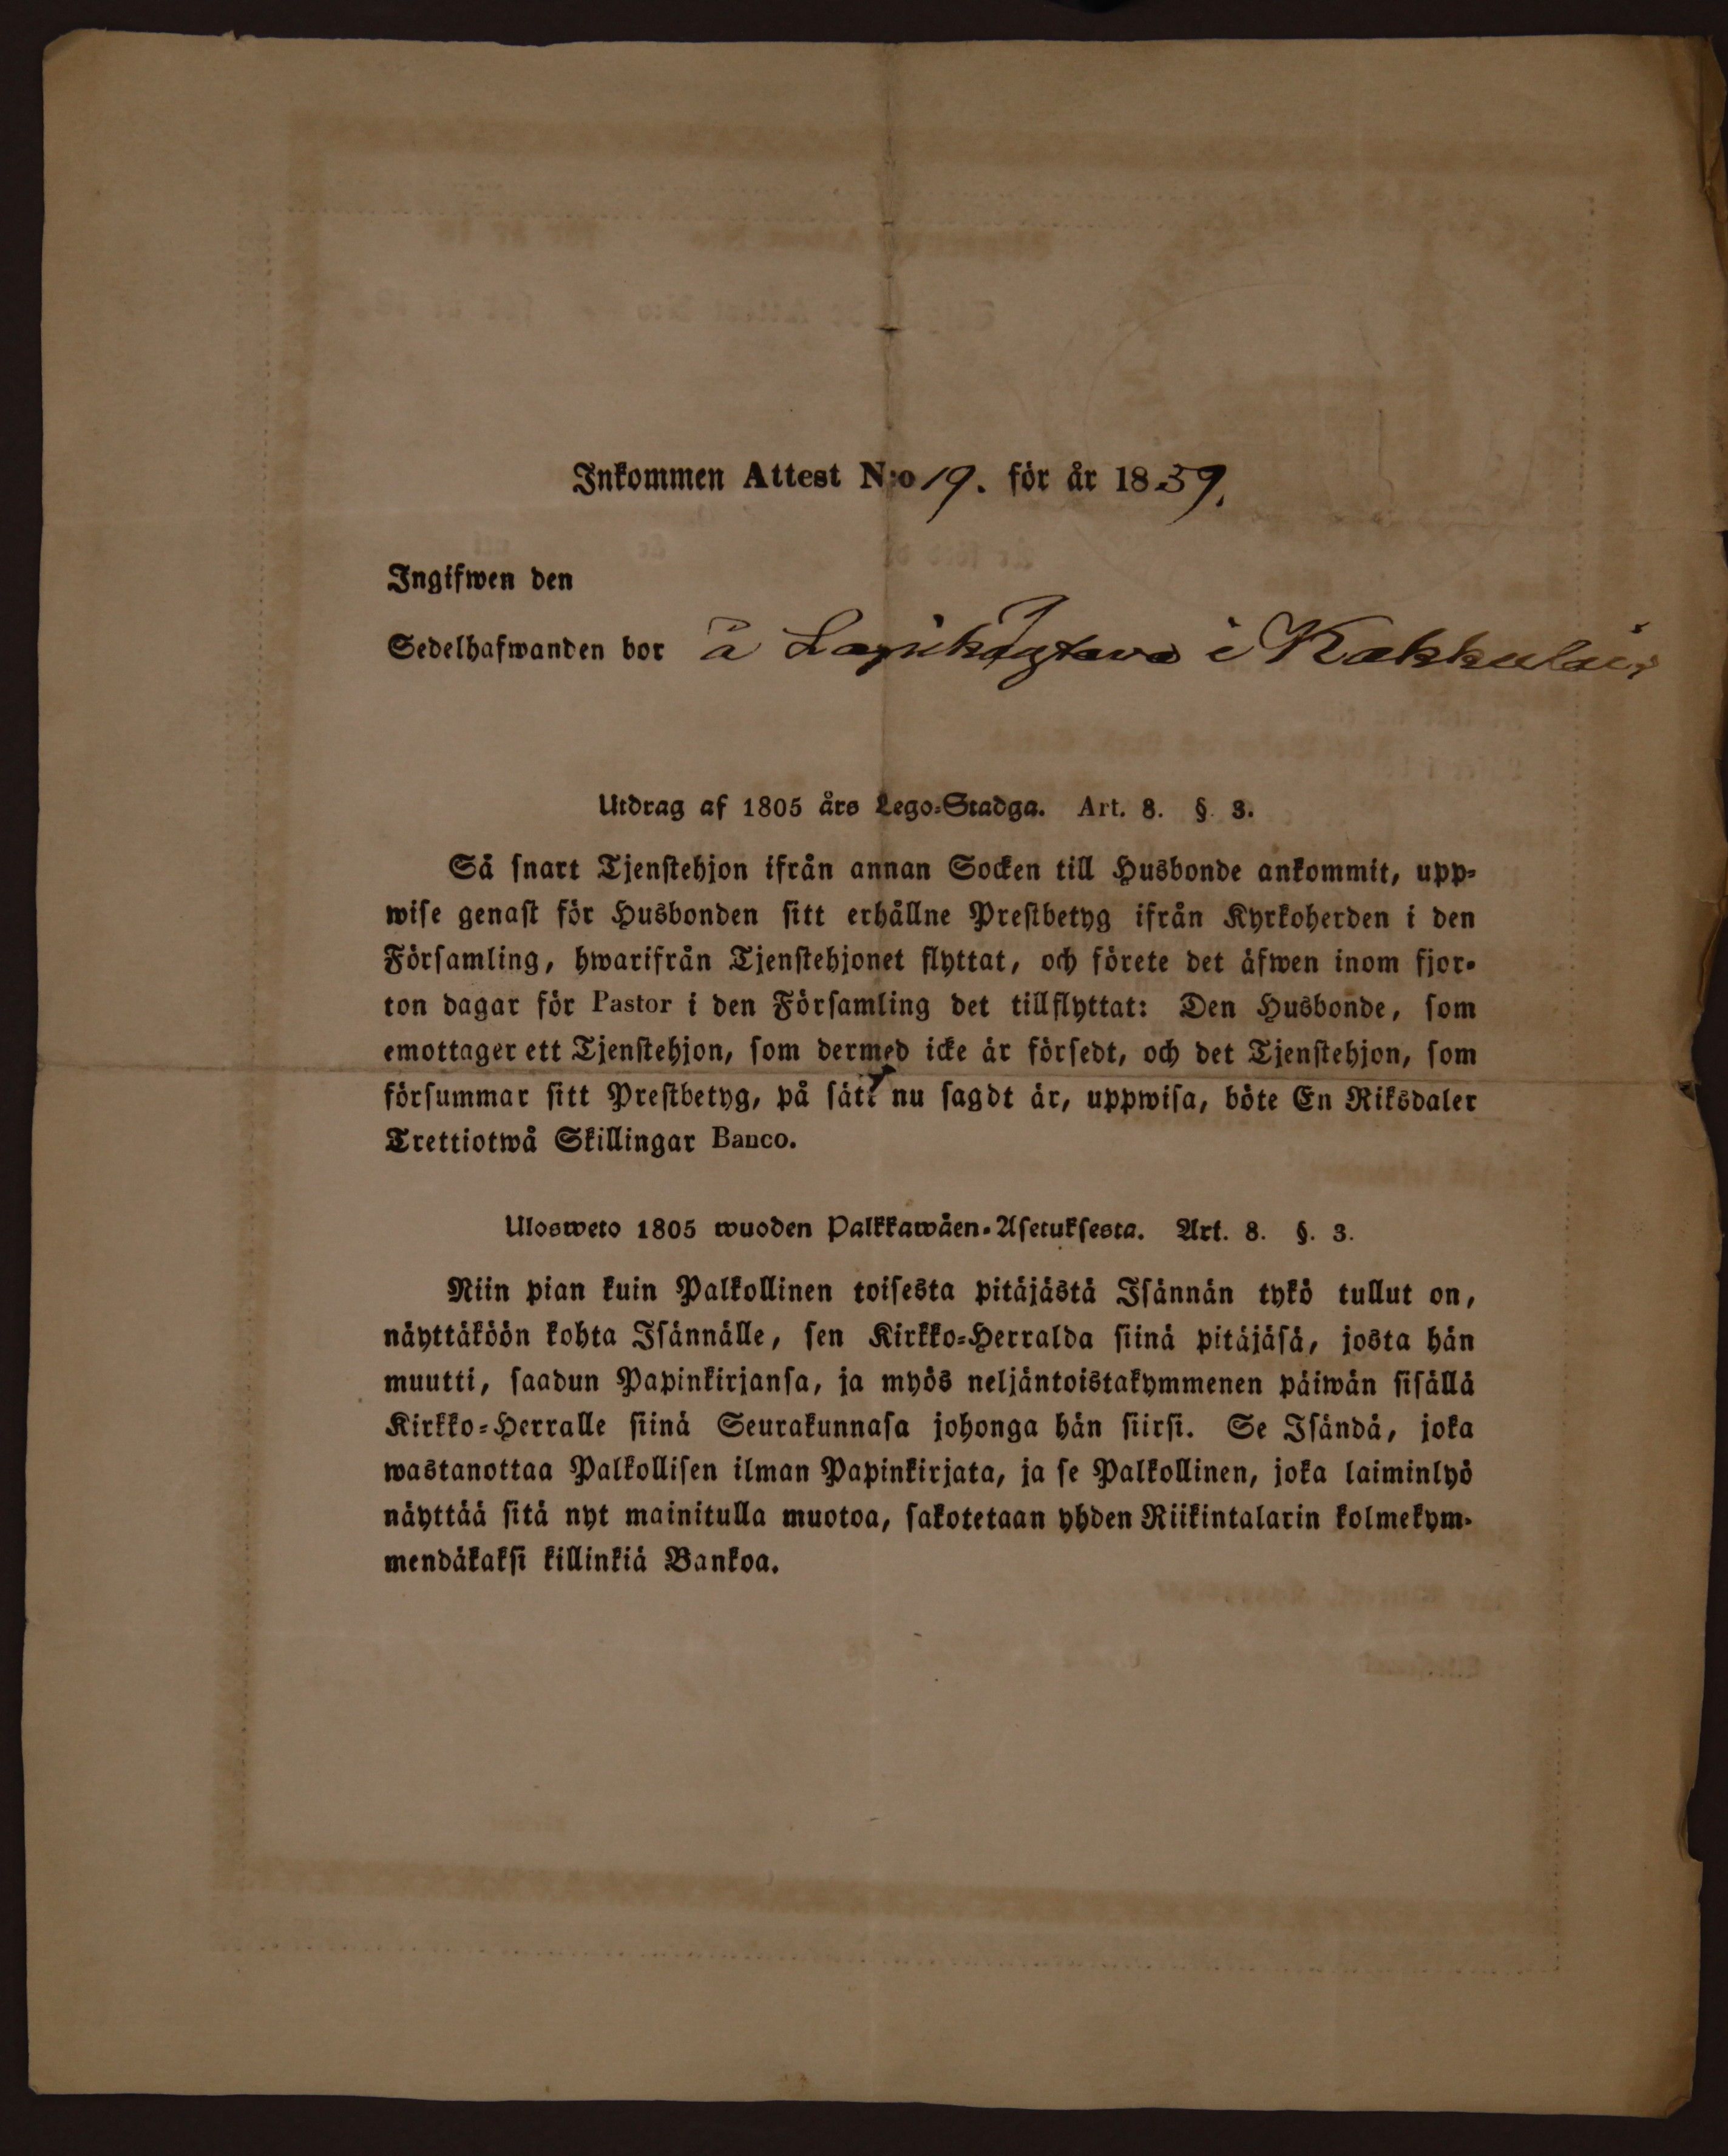 Inkommen Attest N:o 19. för år 1839.
Ingifwen den
Sedelhafwanden bor å i Kakkulais
Utdrag af 1805 års Lego-Stadga. Art. 8. § 3.
Så snart Tjenstehjon ifrån annan Socken till Husbonde ankommit, upp-
wise genast för Husbonden sitt erhållne Prestbetyg ifrån Kyrkoherden i den
Församling, hwarifrån Tjenstehjonet flyttat, och förete det äfwen inom fjor-
ton dagar för Pastor i den Församling det tillflyttat: Den Husbonde, som
emottager ett Tjenstehjon, som dermed icke är försedt, och det Tjenstehjon, som
försummar sitt Prestbetyg, på sätt nu sagdt är, uppwisa, böte En Riksdaler
Trettiotwå Skillingar Banco.
Ulosweto 1805 wuoden Palkkawäen-Asetuksesta. Art. 8. §. 3.
Niin pian kuin Palkollinen toisesta pitäjästä Isännän tykö tullut on,
näyttäköön kohta Isännälle, sen Kirkko-Herralda siinä pitäjäsä, josta hän
muutti, saadun Papinkirjansa, ja myös neljäntoistakymmenen päiwän sisällä
Kirkko-Herralle siinä Seurakunnasa johonga hän siirsi. Se Isändä, joka
wastanottaa Palkollisen ilman Papinkirjata, ja se Palkollinen, joka laiminlyö
näyttää sitä nyt mainitulla muotoa, sakotetaan yhden Riikintalarin kolmekym-
mendäkaksi killinkiä Bankoa.